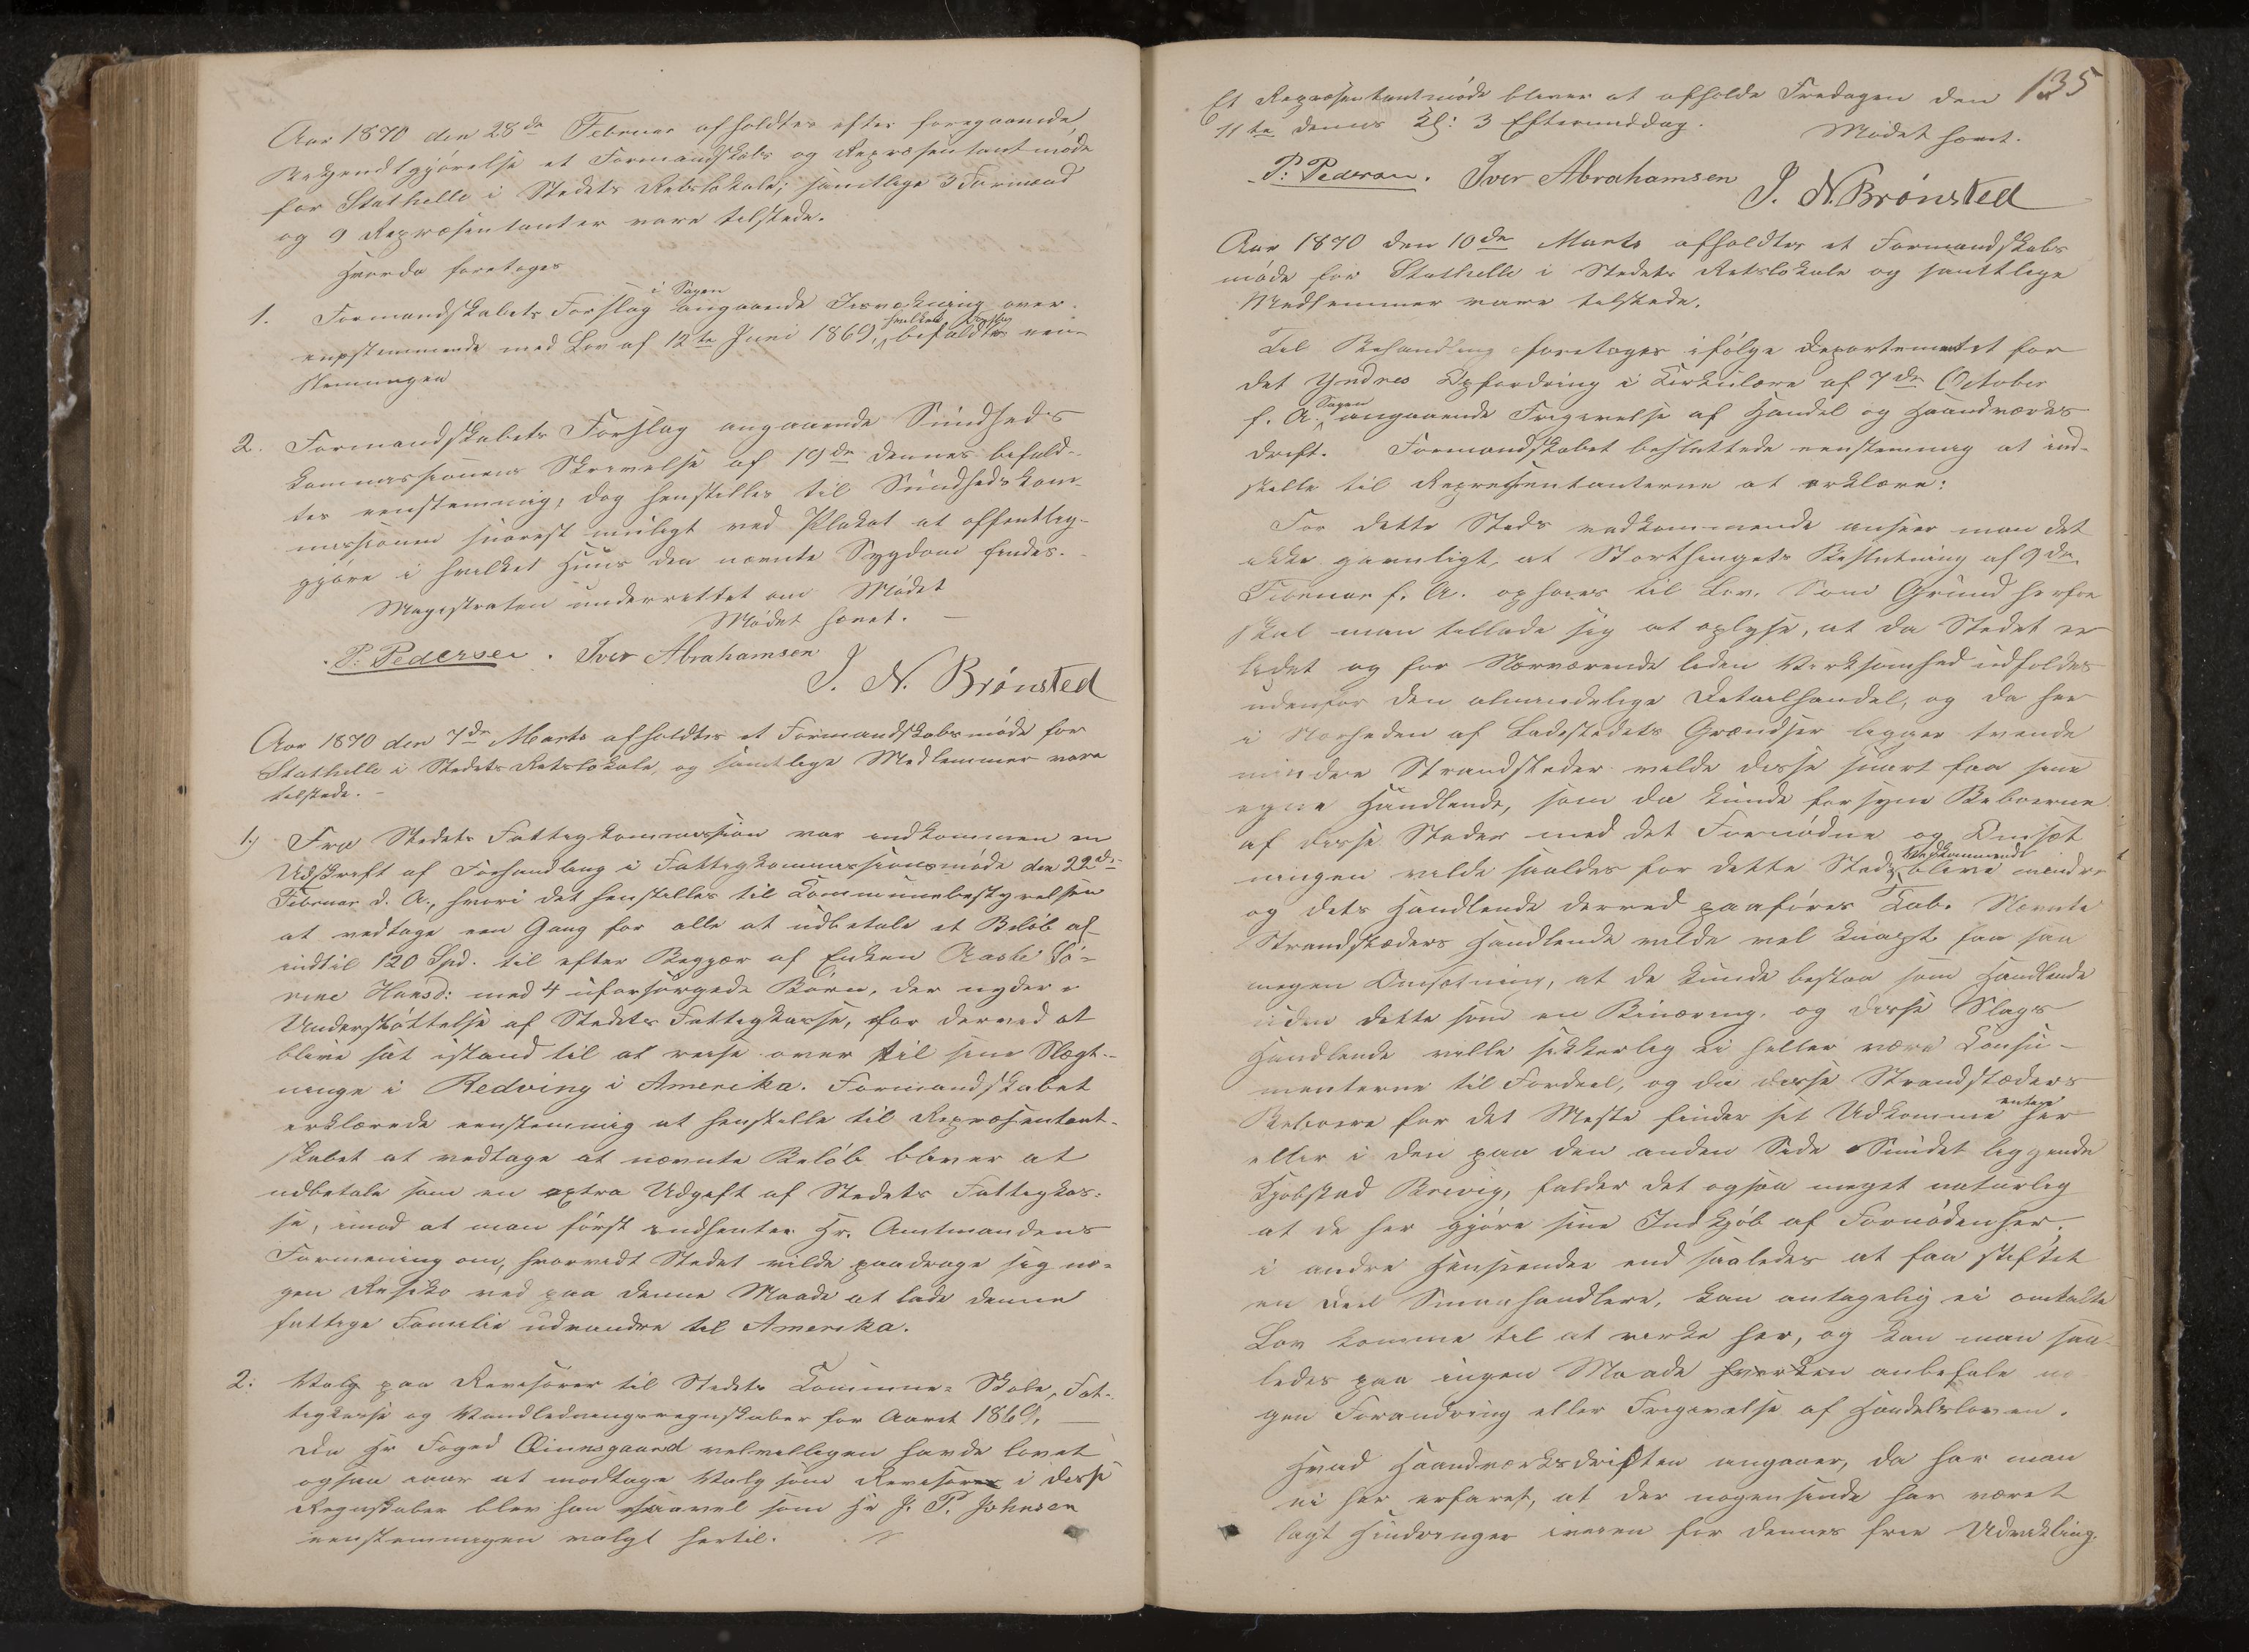 Aar 1870 den 28de Februar afholdtes efter foregaaende
Bekjendtgjørelse et Formandskabs og Repræsentantmøde
for Stathelle i Stedets Retslokale; samtlige 3 Formænd
og 9 Repræsentanter vare tilstede.
Hvorda foretoges
i Sagen
1. Formandskabets Forslag angaaende over-
hvilket Forslag
eenstemmende med Lov af 12te Juni 1869, bifaldtes een-
stemmigen
2. Formandskabets Forslag angaaende Sundheds
kommissionens Skrivelse af 19de dennes bifald-
tes eenstemmig, dog henstilles til Sundhedskom-
missionen snarest muligt ved Plakat at offentlig-
gjøre i hvilket Huus den nævnte Sygdom findes.
Magistraten underrettet om Mødet
Mødet hævet. —
P. Pedersen. Iver Abrahamsen
J. N. Brønsted
Aar 1870 den 7de Marts afholdtes et Formandskabsmøde for
Stathelle i Stedets Retslokale, og samtlige Medlemmer vare
tilstede. —
1.) Fra Stedets Fattigkommission var indkommen en
Udskrift af Forhandling i Fattigkommissionsmøde den 22de
Februar d. A., hvori det henstilles til Kommunebestyrelsen
at vedtage een Gang for alle at udbetale et Beløb af
indtil 120 Spd. til efter Begjær af Enken Aaste Sø-
rine Hansd: med 4 uforsørgede Børn, der nyder
Understøttelse af Stedets Fattigkasse, for derved at
blive sat istand til at reise over til sine Slægt-
ninge i Redving i Amerika. Formandskabet
erklærede eenstemmig at henstille til Repræsentant-
skabet at vedtage at nævnte Beløb bliver at
udbetale som en extra Udgift af Stedets Fattigkas-
se, imod at man først indhenter Hr. Amtmandens
Formening om, hvorvidt Stedet vilde paadrage sig no-
gen Resiko ved paa denne Maade at lade denne
fattige Familie udvandre til Amerika.
2: Valg paa Revisorer til Stedets Commune- Skole, Fat-
tigkasse og Vandledningsregnskaber for Aaret 1869, —
Da Hr Foged Qvinsgaard velvilligen havde lovet
ogsaa iaar at modtage Valg som Revisor i disse
Regnskaber blev han saavel som Hr J. P. Johnsen
eenstemmigen valgt hertil.
135
Et Repræsentantmøde bliver at afholde Fredagen den
11te dennes Kl: 3 Eftermiddag.
Mødet hævet.
P. Pedersen. Iver Abrahamsen
J. N. Brønsted
Aar 1870 den 10de Marts afholdtes et Formandskabs
møde for Stathelle i Stedets Retslokale og samtlige
Medlemmer vare tilstede.
Til Behandling foretoges ifølge Departementet for
det Indres Opfordring i Cirkulære af 7de October
Sagen
f. A. angaaende Frigivelse af Handel og Haandværks
drift. Formandskabet besluttede eenstemmig at ind-
stille til Representanterne at erklære:
For dette Steds vedkommende anseer man det
ikke gavnligt, at Storthingets Beslutning af 9de
Februar f. A. ophøies til Lov. Som Grund herfor
skal man tillade sig at oplyse, at da Stedet er
lidet og for Nærværende liden Virksomhed udfoldes
udenfor den almindelige Detailhandel, og da her
i Nærheden af Ladestedets Grændser ligger tvende
mindre Strandsteder vilde disse snart faa sine
egne Handlende, som da kunde forsyne Beboerne
af disse Steder med det Fornødne og Omsæt
vedkommende
ningen vilde saaledes for dette Steds blive mindre
og dets Handlende derved paaføres Tab. Nævnte
Strandstæders Handlende vilde vel knapt faa saa
megen Omsætning, at de kunde bestaa som Handlende
uden dette som en Binæring, og disse Slags
Handlende ville sikkerlig ei heller være Consu-
menterne til Fordeel, og da disse Strandstæders
enten
Beboere for det Meste finder sit Udkomme her
eller i den paa den anden Side Sundet liggende
Kjøbstad Brevig, falder det ogsaa meget naturlig
at de her gjøre sine Indkjøb af Fornødenheder,
i andre Henseender end saaledes at faa stiftet
en Deel Smaahandlere, kan antagelig ei omtalte
Lov komme til at virke her, og kan man saa-
ledes paa ingen Maade hverken anbefale no
gen Forandring eller Frigivelse af Handelsloven.
Hvad Haandværksdriften angaaer, da har man
ei her erfaret, at der nogensinde har været
lagt Hindringer iveien for dennes frie Udvikling.